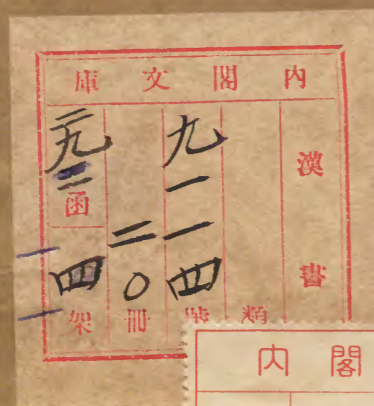 内閣文庫
漢書
類
九一一四號
二〇冊
二九二函
四架
内閣